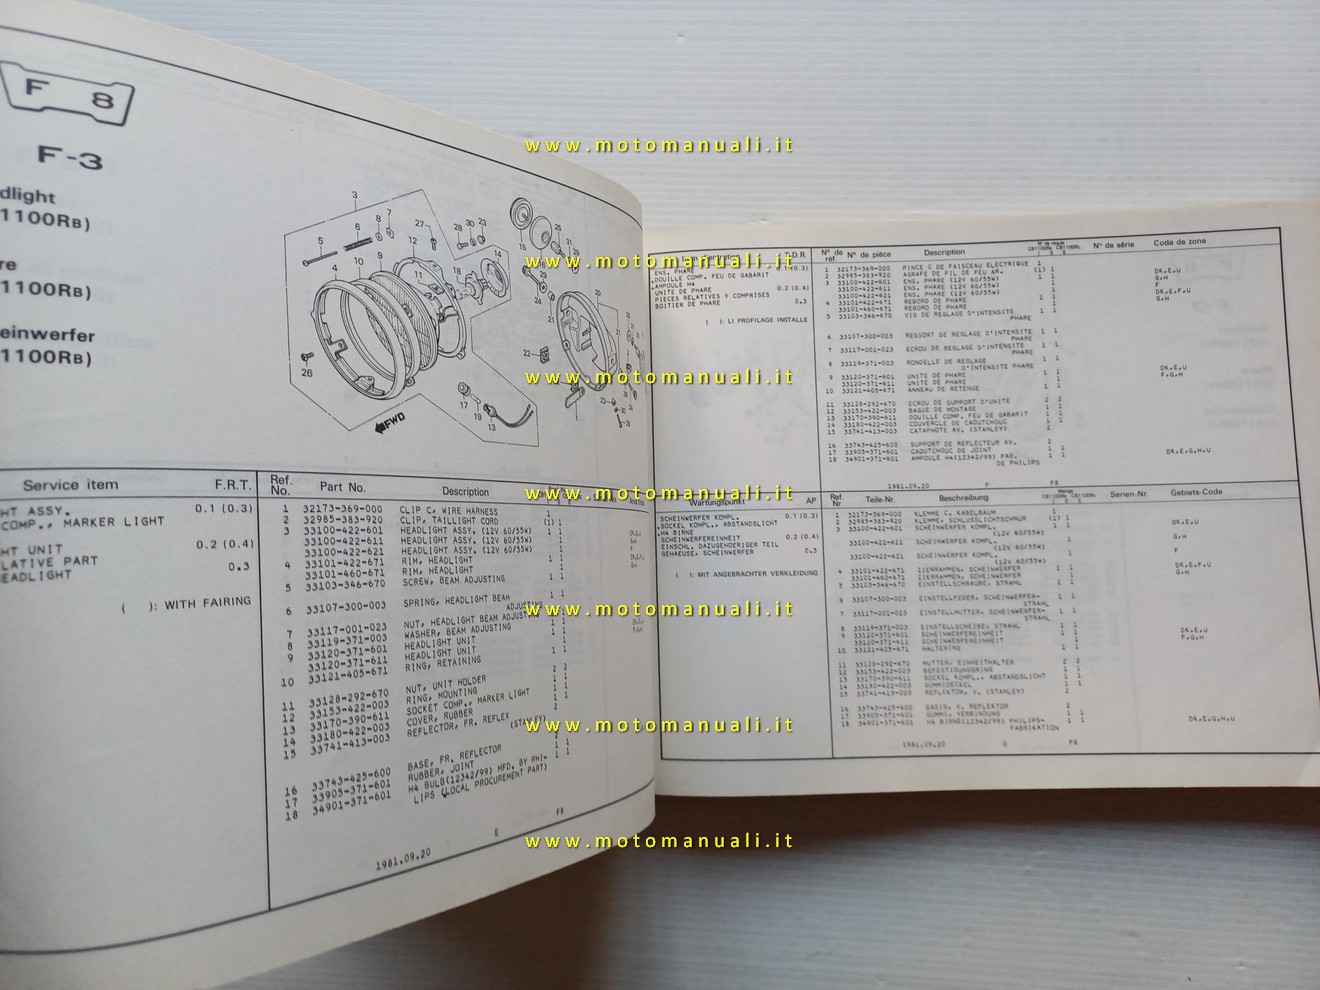 F 8
F-3
dlight
1100RB)
re
1100RB)
einwerfer
1100RB)
www.motomanuali.it
www.motomanuali.it
www.motomanuali.it
www.motomanuali.it
www.motomanuali.it
www.motomanuali.it
www.motomanuali.it
FWD
Service item F.R.T.
HT ASSY. 0.1 (0.3)
COMP., MARKER LIGHT
HT UNIT 0.2 (0.4)
LATIVE PART
EADLIGHT 0.3
( ): WITH FAIRING
Ref. No. Part No. Description
1 32173-369-000 CLIP C, WIRE HARNESS
2 32985-383-920 CLIP, TAILLIGHT CORD
3 33100-422-601 HEADLIGHT ASSY. (12V 60/55W)
33100-422-611 HEADLIGHT ASSY. (12V 60/55W)
33100-422-621 HEADLIGHT ASSY. (12V 60/55W)
4 33101-422-671 RIM, HEADLIGHT
33101-460-671 RIM, HEADLIGHT
5 33103-346-670 SCREW, BEAM ADJUSTING
6 33107-300-003 SPRING, HEADLIGHT BEAM ADJUSTING
7 33117-001-023 NUT, HEADLIGHT BEAM ADJUSTING
8 33119-371-003 WASHER, BEAM ADJUSTING
9 33120-371-601 HEADLIGHT UNIT
33120-371-611 HEADLIGHT UNIT
10 33121-405-671 RING, RETAINING
11 33128-292-670 NUT, UNIT HOLDER
12 33153-422-003 RING, MOUNTING
13 33170-390-611 SOCKET COMP., MARKER LIGHT
14 33180-422-003 COVER, RUBBER
15 33741-413-003 REFLECTOR, FR. REFLEX (STANLEY)
16 33743-425-600 BASE, FR. REFLECTOR
17 33905-371-601 RUBBER, JOINT
18 34901-371-601 H4 BULB(12342/99) MFD. BY PHI-
LIPS (LOCAL PROCUREMENT PART)
1981.09.20 E F8
T.D.R.
ENS. PHARE 0.1(0.3)
.DOUILLE COMP. FEU DE GABARIT
.AMPOULE H4
UNITE DE PHARE 0.2 (0.4)
PIECES RELATIVES Y COMPRISES
BOITIER DE PHARE 0.3
( ): LI PROFILAGE INSTALLE
N° de réf. N° de pièce Description N° de série Code de zone
1 32173-369-000 PINCE C DE FAISCEAU ELECTRIQUE 1
2 32985-383-920 AGRAFE DE FIL DE FEU AR. (1) 1
3 33100-422-601 ENS. PHARE (12V 60/55W) 1 1 DK,E,U
33100-422-611 ENS. PHARE (12V 60/55W) G,H
33100-422-621 ENS. PHARE (12V 60/55W) F
4 33101-422-671 REBORD DE PHARE DK,E,F,U
33101-460-671 REBORD DE PHARE G,H
5 33103-346-670 VIS DE REGLAGE D'INTENSITE PHARE
6 33107-300-003 RESSORT DE REGLAGE D'INTENSITE PHARE 1 1
7 33117-001-023 ECROU DE REGLAGE D'INTENSITE PHARE 1 1
8 33119-371-003 RONDELLE DE REGLAGE D'INTENSITE PHARE 1 1
9 33120-371-601 UNITE DE PHARE DK,E,U
33120-371-611 UNITE DE PHARE F,G,H
10 33121-405-671 ANNEAU DE RETENUE
11 33128-292-670 ECROU DE SUPPORT D'UNITE 2 2
12 33153-422-003 BAGUE DE MONTAGE 1 1
13 33170-390-611 DOUILLE COMP. FEU DE GABARIT 1 1
14 33180-422-003 COUVERCLE DE CAOUTCHOUC 1 1
15 33741-413-003 CATAPHOTE AV. (STANLEY) 2
16 33743-425-600 SUPPORT DE REFLECTEUR AV. 2
17 33905-371-601 CAOUTCHOUC DE JOINT 1 1
18 34901-371-601 AMPOULE H4(12342/99) FAB. DE PHILIPS 1 1 DK,E,G,H,U
1981.09.20 F F8
Wartungspunkt AP
SCHEINWERFER KOMPL. 0.1 (0.3)
.SOCKEL KOMPL., ABSTANDSLICHT
.H4 BIRNE
SCHEINWERFEREINHEIT 0.2 (0.4)
EINSCHL. DAZUGEHOERIGER TEIL
GEHAEUSE, SCHEINWERFER 0.3
( ): MIT ANGEBRACHTER VERKLEIDUNG
Ref. Nr. Teile-Nr. Beschreibung Menge Serien-Nr. Gebiets-Code
1 32173-369-000 KLEMME C, KABELBAUM 1
2 32985-383-920 KLEMME, SCHLUSSLICHTSCHNUR (1) 1
3 33100-422-601 SCHEINWERFER KOMPL. (12V 60/55W) 1 1 DK,E,U
33100-422-611 SCHEINWERFER KOMPL. (12V 60/55W) G,H
33100-422-621 SCHEINWERFER KOMPL. (12V 60/55W) F
4 33101-422-671 ZIERRAHMEN, SCHEINWERFER DK,E,F,U
33101-460-671 ZIERRAHMEN, SCHEINWERFER G,H
5 33103-346-670 EINSTELLSCHRAUBE, STRAHL 1 1
6 33107-300-003 EINSTELLFEDER, SCHEINWERFER-STRAHL 1 1
7 33117-001-023 EINSTELLMUTTER, SCHEINWERFER-STRAHL 1 1
8 33119-371-003 EINSTELLSCHEIBE, STRAHL 1 1
9 33120-371-601 SCHEINWERFEREINHEIT DK,E,U
33120-371-611 SCHEINWERFEREINHEIT F,G,H
10 33121-405-671 HALTERING 1 1
11 33128-292-670 MUTTER, EINHEITHALTER 2 2
12 33153-422-003 BEFESTIGUNGSRING 1 1
13 33170-390-611 SOCKEL KOMPL., ABSTANDSLICHT 1 1
14 33180-422-003 GUMMIDECKEL 1 1
15 33741-413-003 REFLEKTOR, V. (STANLEY) 2
16 33743-425-600 BASIS, V. REFLEKTOR 2
17 33905-371-601 GUMMI, VERBINDUNG 1 1
18 34901-371-601 H4 BIRNE(12342/99) PHILIPS-FABRIKATION 1 1 DK,E,G,H,U
1981.09.20 G F8